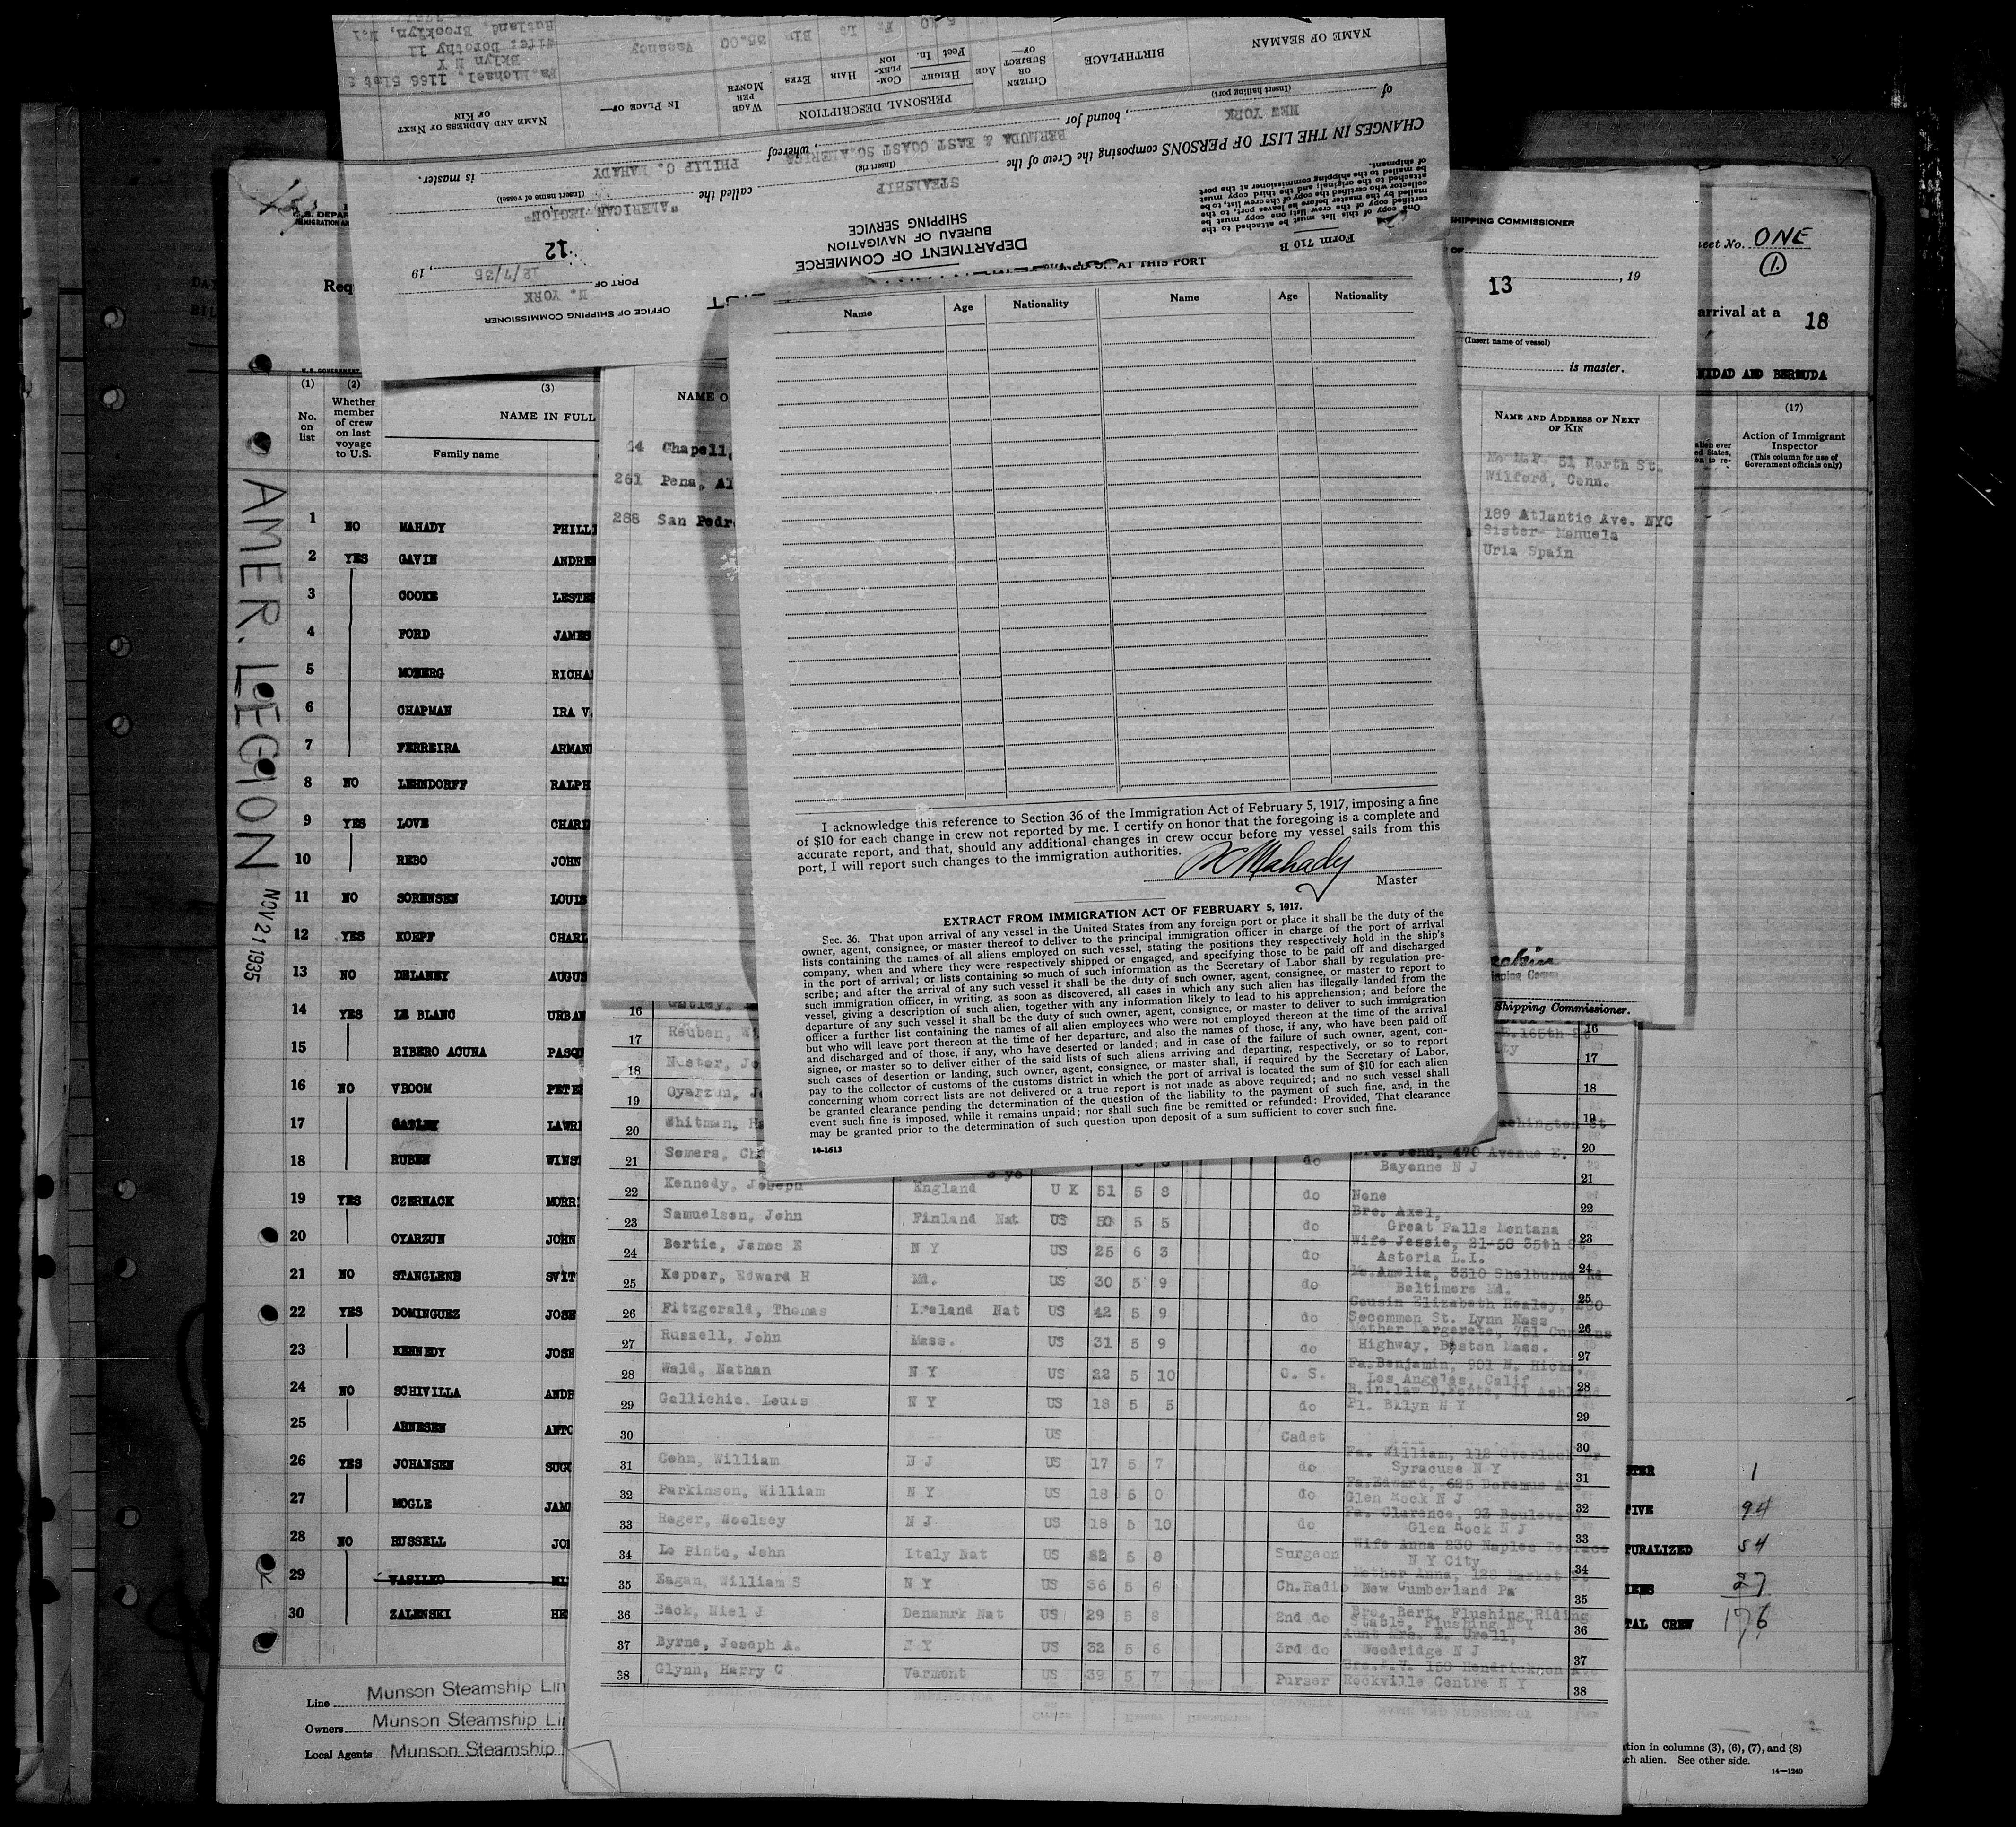 Form 710 B
One copy of this list must be attached to the
certified copy of the crew list; one copy must be
mailed by the master before he leaves port, to the
collector who certified the copy of the crew list, to be
attached to the original; and the third copy must
be mailed to the shipping commissioner at the port
of shipment.
DEPARTMENT OF COMMERCE
BUREAU OF NAVIGATION
SHIPPING SERVICE
OFFICE OF SHIPPING COMMISSIONER
PORT OF N. YORK
12/7/35, 19
12
CHANGES IN THE LIST OF PERSONS composing the Crew of the STEAMSHIP called the "AMERICAN LEGION"
(Insert rig) (Insert name of vessel)
of NEW YORK, bound for BERMUDA & EAST COAST SO.AMERICA, whereof PHILIP C. MAHADY is master.
(Insert hailing port)
NAME OF SEAMAN
BIRTHPLACE
CITIZEN OR SUBJECT OF—
AGE
PERSONAL DESCRIPTION
HEIGHT
Feet In.
COMPLEXION
HAIR
EYES
WAGE PER MONTH
IN PLACE OF—
NAME AND ADDRESS OF NEXT OF KIN
35.00 Vacancy
Fa.Michael, 1166 51st S
Bklyn N Y
Wife; Dorothy 11
Rutland, Brooklyn, N.Y
AT THIS PORT
Name Age Nationality Name Age Nationality
I acknowledge this reference to Section 36 of the Immigration Act of February 5, 1917, imposing a fine
of $10 for each change in crew not reported by me. I certify on honor that the foregoing is a complete and
accurate report, and that, should any additional changes in crew occur before my vessel sails from this
port, I will report such changes to the immigration authorities.
Mahady
Master
EXTRACT FROM IMMIGRATION ACT OF FEBRUARY 5, 1917.
Sec. 36. That upon arrival of any vessel in the United States from any foreign port or place it shall be the duty of the
owner, agent, consignee, or master thereof to deliver to the principal immigration officer in charge of the port of arrival
lists containing the names of all aliens employed on such vessel, stating the positions they respectively hold in the ship's
company, when and where they were respectively shipped or engaged, and specifying those to be paid off and discharged
in the port of arrival; or lists containing so much of such information as the Secretary of Labor shall by regulation pre-
scribe; and after the arrival of any such vessel it shall be the duty of such owner, agent, consignee, or master to report to
such immigration officer, in writing, as soon as discovered, all cases in which any such alien has illegally landed from the
vessel, giving a description of such alien, together with any information likely to lead to his apprehension; and before the
departure of any such vessel it shall be the duty of such owner, agent, consignee, or master to deliver to such immigration
officer a further list containing the names of all alien employees who were not employed thereon at the time of the arrival
but who will leave port thereon at the time of her departure, and also the names of those, if any, who have been paid off
and discharged and of those, if any, who have deserted or landed; and in case of the failure of such owner, agent, con-
signee, or master so to deliver either of the said lists of such aliens arriving and departing, respectively, or so to report
such cases of desertion or landing, such owner, agent, consignee, or master shall, if required by the Secretary of Labor,
pay to the collector of customs of the customs district in which the port of arrival is located the sum of $10 for each alien
concerning whom correct lists are not delivered or a true report is not made as above required; and no such vessel shall
be granted clearance pending the determination of the question of the liability to the payment of such fine, and, in the
event such fine is imposed, while it remains unpaid; nor shall such fine be remitted or refunded: Provided, That clearance
may be granted prior to the determination of such question upon deposit of a sum sufficient to cover such fine.
14-1613
SHIPPING COMMISSIONER
13, 19
(Insert name of vessel)
is master.
NAME AND ADDRESS OF NEXT OF KIN
Mo M.F. 51 North St.
Wilford, Conn.
189 Atlantic Ave. NYC
Sister- Manuela
Uria Spain
Shipping Commissioner.
eet No. ONE
1
arrival at a 18
NIDAD AND BERMUDA
(17)
Action of Immigrant
Inspector
(This column for use of
Government officials only)
AMER. LEGION
NOV 21 1935
U.S. DEPAR
Req
(1) (2) (3)
No. on list
Whether member of crew on last voyage to U.S.
NAME IN FULL
Family name
1 NO MAHADY PHILLI
2 YES GAVIN ANDRE
3 COOKE LESTE
4 FORD JAMES
5 MOBERG RICHA
6 CHAPMAN IRA V.
7 FERREIRA ARMAN
8 NO LEHNDORFF RALPH
9 YES LOVE CHARL
10 REBO JOHN
11 NO SORENSEN LOUIS
12 YES KOEPF CHARL
13 NO DELANEY AUGUS
14 YES LE BLANC URBAN
15 RIBERO ACUNA PASQU
16 NO VROOM PETE
17 GATLEY LAWR
18 RUBEN WINS
19 YES CZERNACK MORR
20 OYARZUN JOHN
21 NO STANGLEND SVIT
22 YES DOMINGUEZ JOSE
23 KENNEDY JOSE
24 NO SCHIVILLA ANDR
25 ARNESEN ANTO
26 YES JOHANSEN
27 MOGLE JAM
28 NO RUSSELL JO
29 VASILKO MI
30 ZALENSKI HE
Line Munson Steamship Lin
Owners Munson Steamship Li
Local Agents Munson Steamship
NAME O
44 Chapell,
261 Pena, Al
288 San Pedr
16 Gatley,
17 Reuben, Wi
18 Nester, Jo
19 Oyarzun, J
20 Whitman, Ha
21 Somers, Ch do Bro. John, 470 Avenue E. Bayonne N J
22 Kennedy, Joseph England U K 51 5 8 do None
23 Samuelsen, John Finland Nat US 50 5 5 do Bro. Axel, Great Falls Montana
24 Bertie, James E N Y US 25 6 3 do Wife Jessie, 21-58 35th St Astoria L.I.
25 Kepper, Edward H Md. US 30 5 9 do Mo.Amelia, 3310 Shelburne Rd Baltimore Md.
26 Fitzgerald, Thomas Ireland Nat US 42 5 9 do Cousin Elizabeth Healey, Secommon St. Lynn Mass
27 Russell, John Mass. US 31 5 9 do Mother Margerete, 751 Cummins Highway, Boston Mass.
28 Wald, Nathan N Y US 22 5 10 O. S. Fa.Benjamin, 901 N. Hicks, Los Angeles, Calif
29 Gallichie. Louis N Y US 18 5 5 do Pl. Bklyn N Y
30 US Cadet
31 Cohn, William N J US 17 5 7 do Fa. William, 112 Overlook Dr Syracuse N Y
32 Parkinson, William N Y US 18 6 0 do Fa.Edward, 625 Doremus Ave Glen Rock N J
33 Hager, Woolsey N J US 18 5 10 do Fa. Clarence, 93 Boulevard Glen Rock N J
34 Lo Pinto, John Italy Nat US 5 8 Surgeon Wife Anna 230 Naples Terrace N Y City
35 Eagan, William S N Y US 36 5 6 Ch.Radio Mother Anna, 128 Market St New Cumberland Pa
36 Back, Niel J Denamrk Nat US 29 5 8 2nd do Bro. Bert, Flushing Riding Stable, Flushing N Y
37 Byrne, Joseph A. N Y US 32 5 6 3rd do Woodridge N J
38 Glynn, Harry C Vermont US 39 5 7 Purser Rockville Centre N Y
TER 1
TIVE 94
TURALIZED 54
IENS 27
TAL CREW 176
ation in columns (3), (6), (7), and (8)
ch alien. See other side.
14—1240